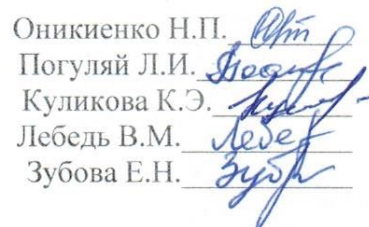 Оникиенко Н.П.
Погуляй Л.И.
Куликова К.Э.
Лебедь В.М. Лебе
Зубова Е.Н. Зуб